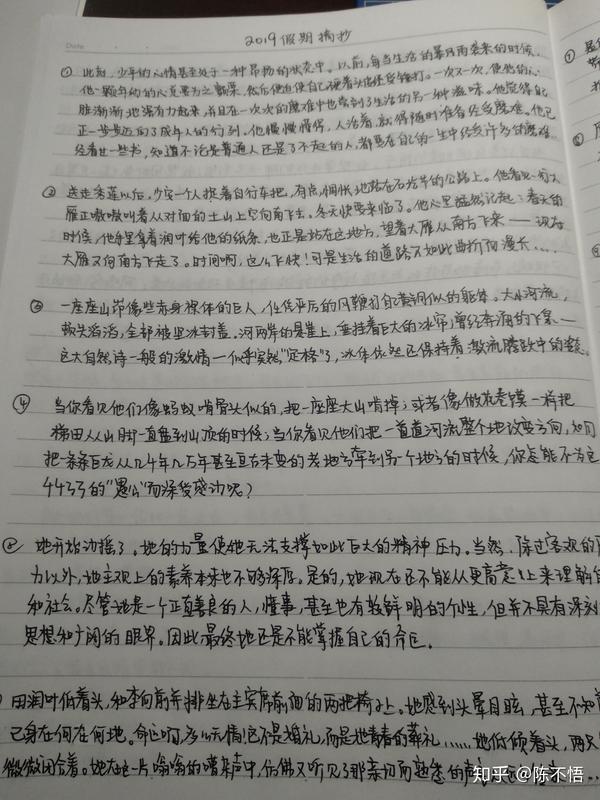 Date
2019假期摘抄
① 此刻,少平的心情甚至处于一种昂扬的状态中。以前,每当生活的暴风雨袭来的时候,
他一颗年幼的心总要为之颤栗,然后他迫使自己硬着头皮经受捶打。一次又一次,使他的心
脏渐渐地强有力起来,并且在一次次的磨难中也尝到了生活的另一种滋味。他觉得自己
正一步步迈向了成年人的行列。他慢慢懂得,人活着,就得随时准备经受磨难。他已
经看过一些书,知道不论是普通人还是了不起的人,都要在自己的一生中经受许多的磨难
② 送走秀莲以后,少安一个人推着自行车把,有点惆怅地站在石圪节的公路上。他看见一行大
雁正嗷嗷叫着从对面的土山上空向南下去。冬天快要来临了。他心里猛然记起:春天的
时候,他手里拿着润叶给他的纸条,也正是站在这地方,望着大雁从南方飞来——现在
大雁又向南方飞走了。时间啊,这么飞快!可是生活的道路又如此曲折而漫长....
③ 一座座山峁像些赤身裸体的巨人,任凭严厉的风鞭打自己黄铜似的躯体。大小河流,
全部被坚冰封盖。河两岸的悬崖上,垂挂着巨大的冰帘;曾经奔涌的飞泉——
这大自然诗一般的激情——似乎突然"定格"了,冰体依然还保持着激流腾跃中的姿态。
④ 当你看见他们像蚂蚁啃骨头似的,把一座座大山啃掉;或者像做花卷馍一样把
梯田从山脚一直盘到山顶的时候;当你看见他们把一道道河流整个地改变方向,如同
把一条条巨龙从几千年几万年甚至亘古未变的老地方牵到另一个地方的时候,你怎能不为这
千千万万的"愚公"而深受感动呢?
⑤ 她开始动摇了。她的力量使她无法支撑如此巨大的精神压力。当然,除过客观的
力以外,她主观上的素养本来也不够深厚。是的,她现在还不能从更高意义上来理解自
和社会。尽管她是一个正直善良的人,懂事,甚至也有较鲜明的个性,但并不具有深刻
思想和广阔的眼界。因此最终她还是不能掌握自己的命运。
田润叶低着头,和李向前并排坐在主宾席前面的两把椅子上。她感到头晕目眩,甚至不知
己身在何地。命运啊,多么无情!这不是婚礼,而是她青春的葬礼......她低倾着头,两
微微闭合着。她在这一片嗡嗡的嘈杂声中,仿佛又听见了那亲切而熟悉的
知乎 @陈不悟